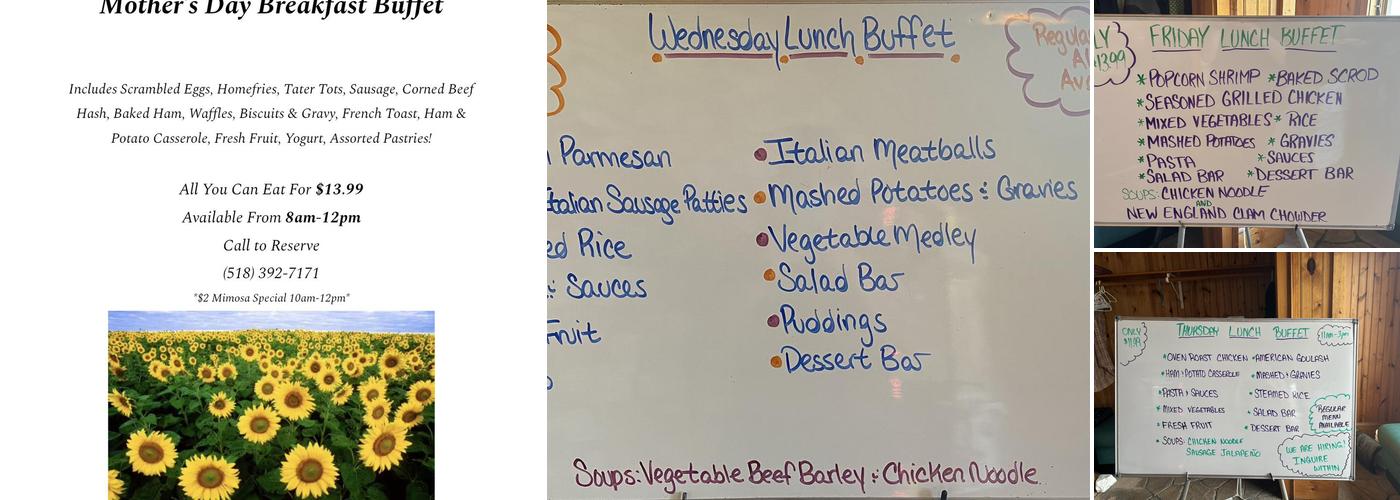 Mother's Day Breakfast Buffet
Includes Scrambled Eggs, Homefries, Tater Tots, Sausage, Corned Beef
Hash, Baked Ham, Waffles, Biscuits & Gravy, French Toast, Ham &
Potato Casserole, Fresh Fruit, Yogurt, Assorted Pastries!
All You Can Eat For $13.99
Available From 8am-12pm
Call to Reserve
(518) 392-7171
*$2 Mimosa Special 10am-12pm*
Wednesday Lunch Buffet
Parmesan
Italian Sausage Patties
Rice
: Sauces
Fruit
Italian Meatballs
Mashed Potatoes : Gravies
Vegetable Medley
Salad Bar
Puddings
Dessert Bar
Soups: Vegetable Beef Barley : Chicken Noodle
LY
$13.99
FRIDAY LUNCH BUFFET
*POPCORN SHRIMP *BAKED SCROD
*SEASONED GRILLED CHICKEN
*MIXED VEGETABLES *RICE
*MASHED POTATOES *GRAVIES
*PASTA *SAUCES
*SALAD BAR *DESSERT BAR
SOUPS: CHICKEN NOODLE
AND
NEW ENGLAND CLAM CHOWDER
ONLY
$11.99
THURSDAY LUNCH BUFFET
11am-3pm
*OVEN ROAST CHICKEN *AMERICAN GOULASH
*HAM : POTATO CASSEROLE *MASHED : GRAVIES
*PASTA : SAUCES *STEAMED RICE
*MIXED VEGETABLES *SALAD BAR
*FRESH FRUIT *DESSERT BAR
*SOUPS: CHICKEN NOODLE
SAUSAGE JALAPEÑO
REGULAR
MENU
AVAILABLE
WE ARE HIRING!
INQUIRE
WITHIN